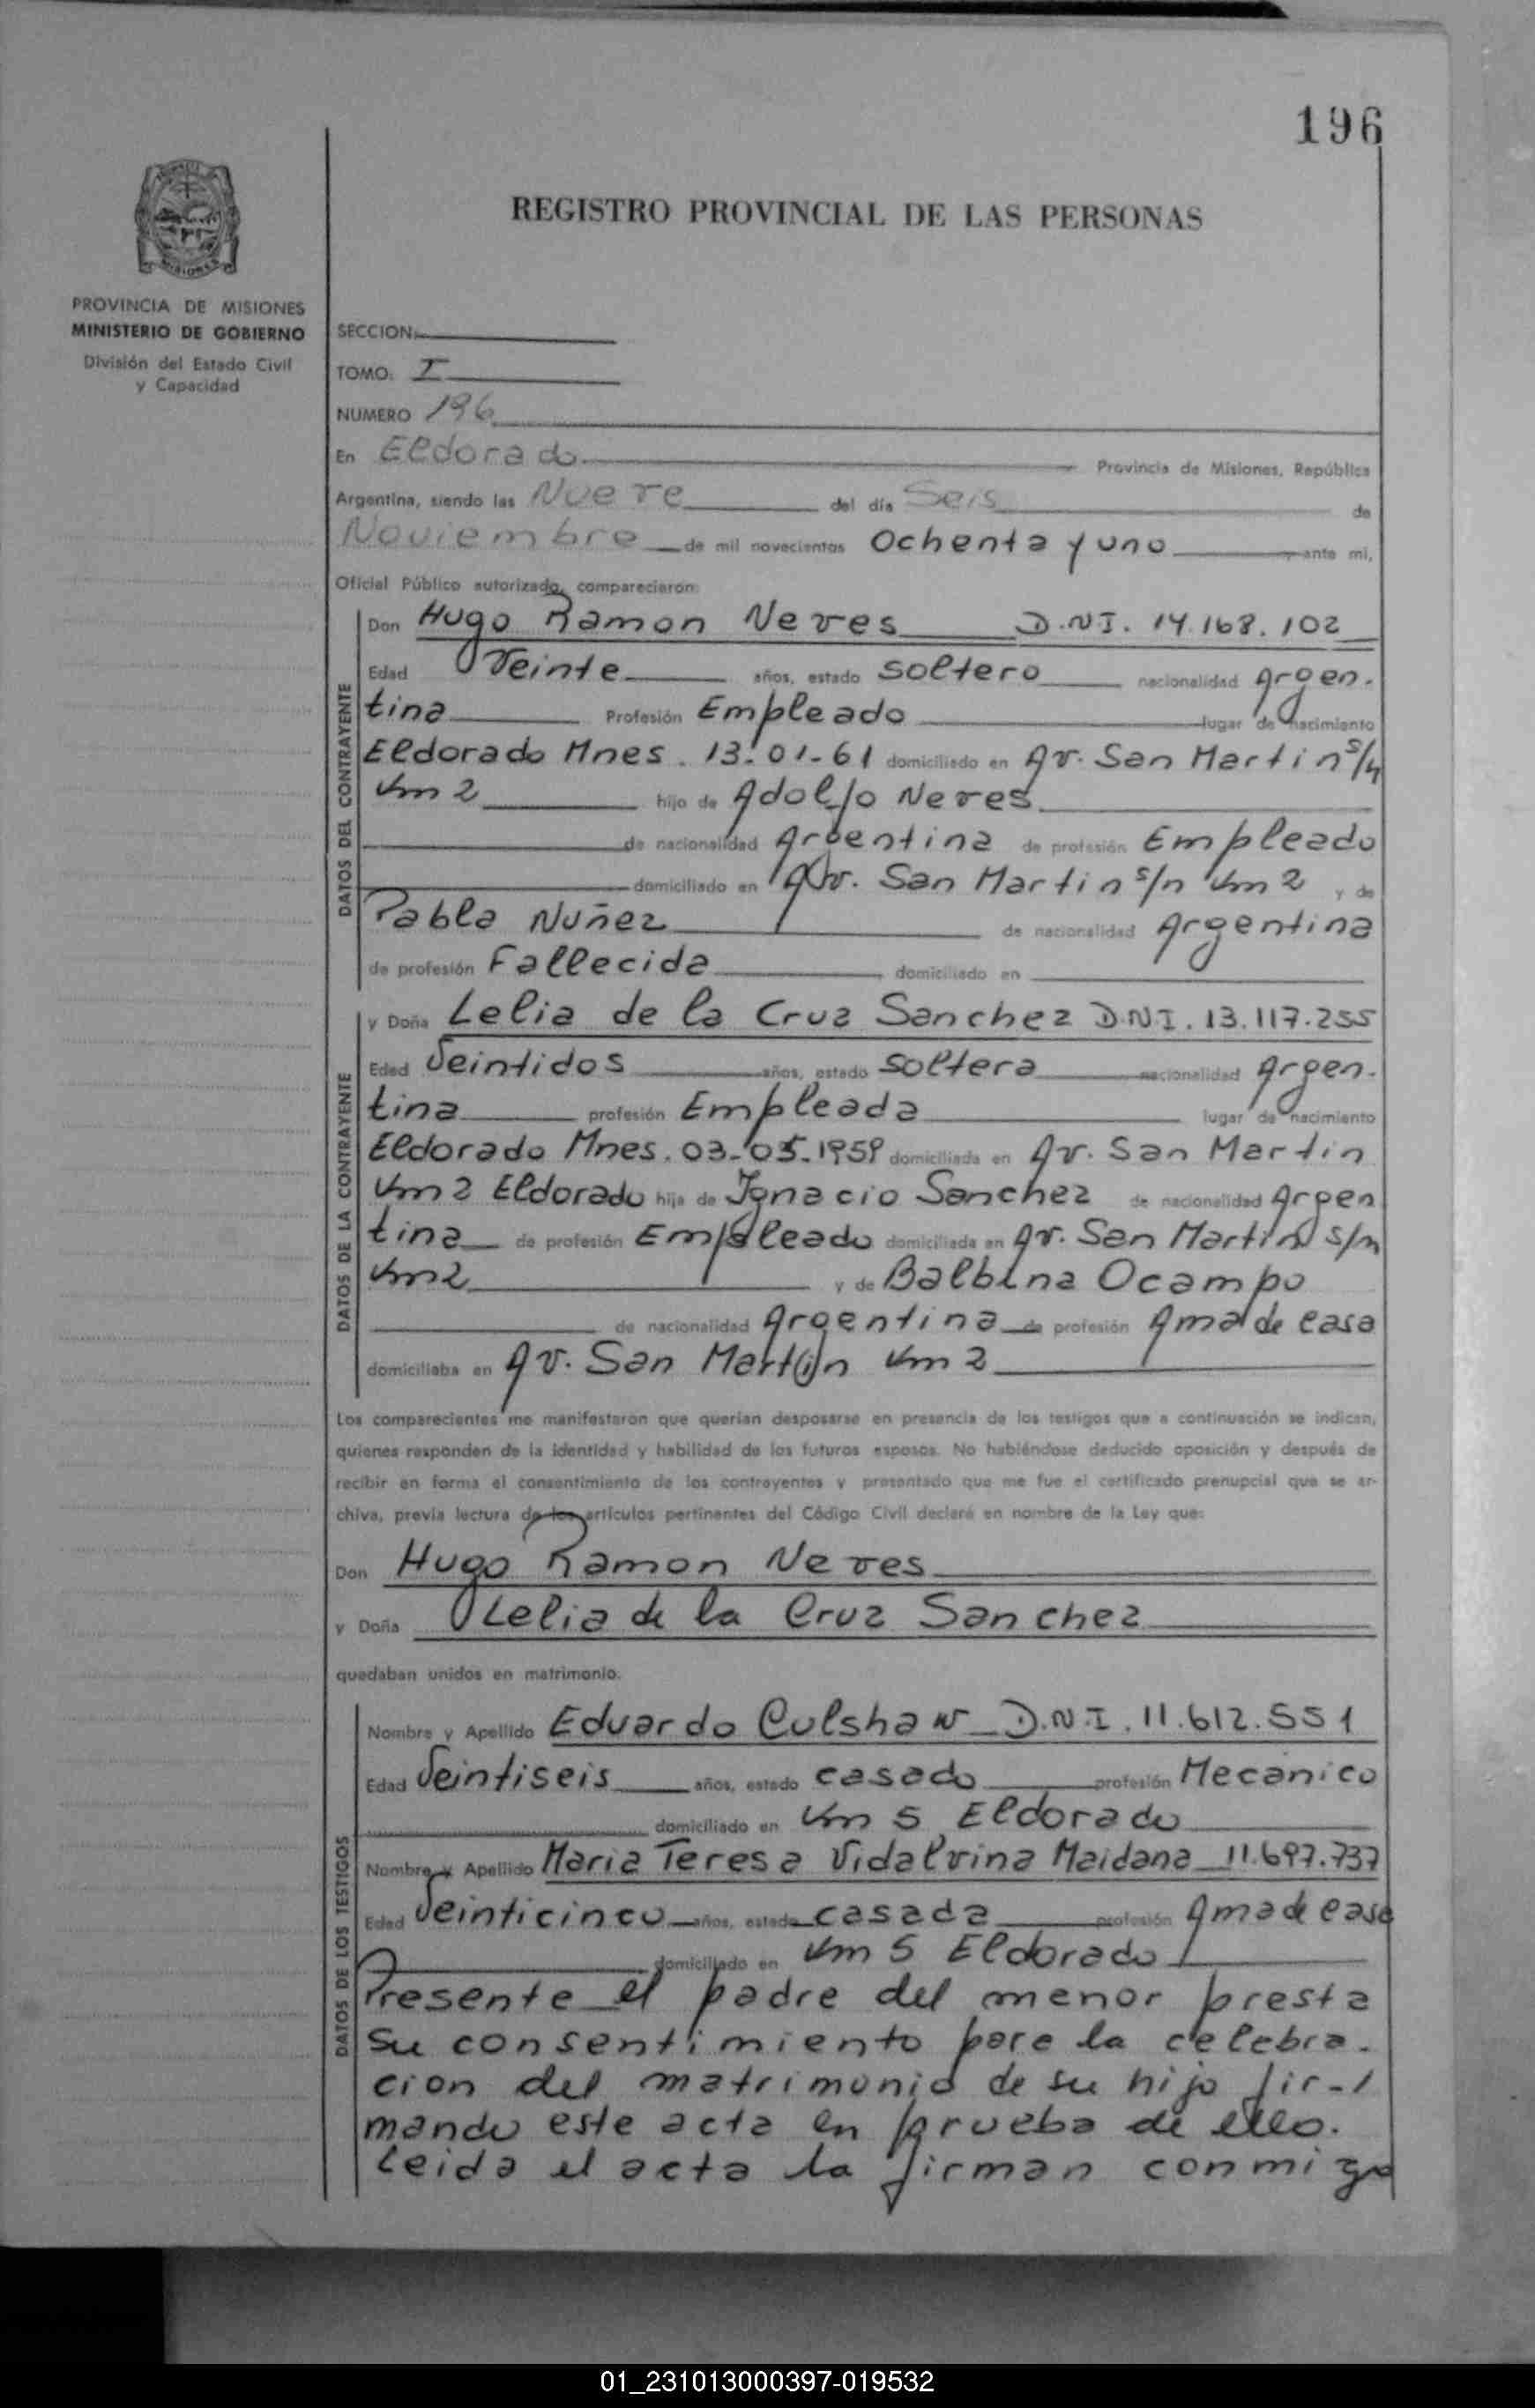 196
REGISTRO PROVINCIAL DE LAS PERSONAS
MISIONES
PROVINCIA DE MISIONES
MINISTERIO DE GOBIERNO
División del Estado Civil
y Capacidad
SECCION
TOMO. I
NUMERO 196
En Eldorado Provincia de Misiones, República
Argentina, siendo las Nueve del día Seis de
Noviembre de mil novecientos Ochenta y uno ante mi,
Oficial Público autorizado, comparecieron:
DATOS DEL CONTRAYENTE
Don Hugo Ramon Neves D.N.I. 14.168.102
Edad Veinte años, estado soltero nacionalidad Argen-
tina Profesión Empleado lugar de nacimiento
Eldorado Mnes. 13-01-61 domiciliado en Av. San Martin s/n
Km 2 hijo de Adolfo Neves
de nacionalidad Argentina de profesión Empleado
domiciliado en Av. San Martin s/n Km 2 y de
Pabla Nuñez de nacionalidad Argentina
de profesión Fallecida domiciliado en
DATOS DE LA CONTRAYENTE
y Doña Lelia de la Cruz Sanchez D.N.I. 13.117.255
Edad Veintidos años, estado soltera nacionalidad Argen-
tina profesión Empleada lugar de nacimiento
Eldorado Mnes. 03-05-1959 domiciliada en Av. San Martin
Km 2 Eldorado hija de Ignacio Sanchez de nacionalidad Argen
tina de profesión Empleado domiciliada en Av. San Martin s/n
Km 2 y de Balbina Ocampo
de nacionalidad Argentina de profesión Ama de casa
domiciliaba en Av. San Martin Km 2
Los comparecientes me manifestaron que querían desposarse en presencia de los testigos que a continuación se indican,
quienes responden de la identidad y habilidad de los futuros esposos. No habiéndose deducido oposición y después de
recibir en forma el consentimiento de los contrayentes y presentado que me fue el certificado prenupcial que se ar-
chiva, previa lectura de los artículos pertinentes del Código Civil declaré en nombre de la Ley que:
Don Hugo Ramon Neves
y Doña Lelia de la Cruz Sanchez
quedaban unidos en matrimonio.
DATOS DE LOS TESTIGOS
Nombre y Apellido Eduardo Culshaw D.N.I. 11.612.551
Edad Veintiseis años, estado casado profesión Mecánico
domiciliado en Km 5 Eldorado
Nombre y Apellido Maria Teresa Vidalvina Maidana 11.697.737
Edad Veinticinco años, estado casada profesión Ama de casa
domiciliado en Km 5 Eldorado
Presente el padre del menor presta
su consentimiento para la celebra-
cion del matrimonio de su hijo fir-/
mando este acta en prueba de ello.
Leida el acta la firman conmigo
01_231013000397-019532